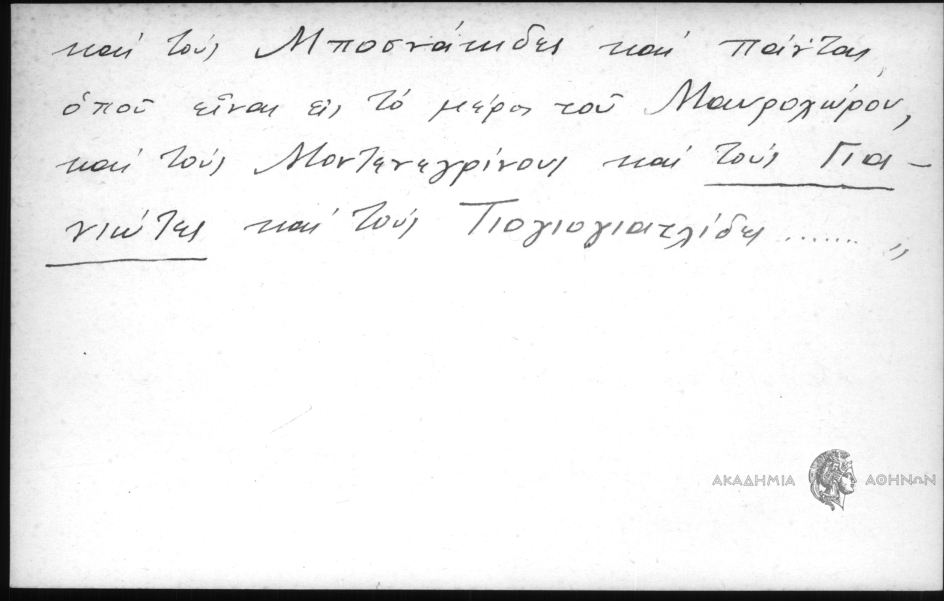 καί τούς Μποσνάκηδες καί πάντας
ὁποῦ εἶναι εἰς τό μέρος τοῦ Μαυροχώρου,
καί τούς Μοντενεγρίνους καί τούς Για-
νιώτες καί τούς Τιογιογιατλίδες ....... „
ΑΚΑΔΗΜΙΑ ΑΘΗΝΩΝ